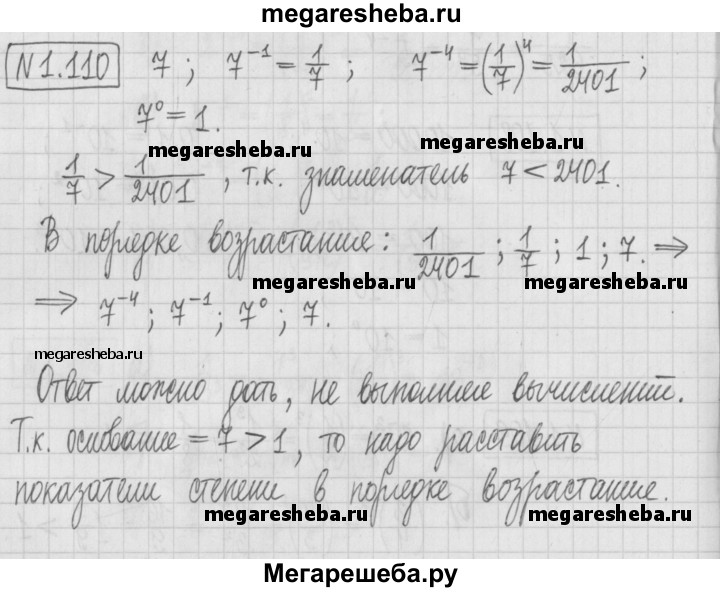 megaresheba.ru
N 1.110 7 ; 7⁻¹ = 1/7 ; 7⁻⁴ = (1/7)⁴ = 1/2401 ;
7⁰ = 1.
megaresheba.ru megaresheba.ru
1/7 > 1/2401 , т.к. знаменатель 7 < 2401.
В порядке возрастания: 1/2401 ; 1/7 ; 1 ; 7. ⇒
megaresheba.ru
⇒ 7⁻⁴ ; 7⁻¹ ; 7⁰ ; 7.
megaresheba.ru
Ответ можно дать, не выполняя вычислений.
Т.к. основание = 7 > 1, то надо расставить
показатели степени в порядке возрастания.
megaresheba.ru megaresheba.ru
Мегарешеба.ру